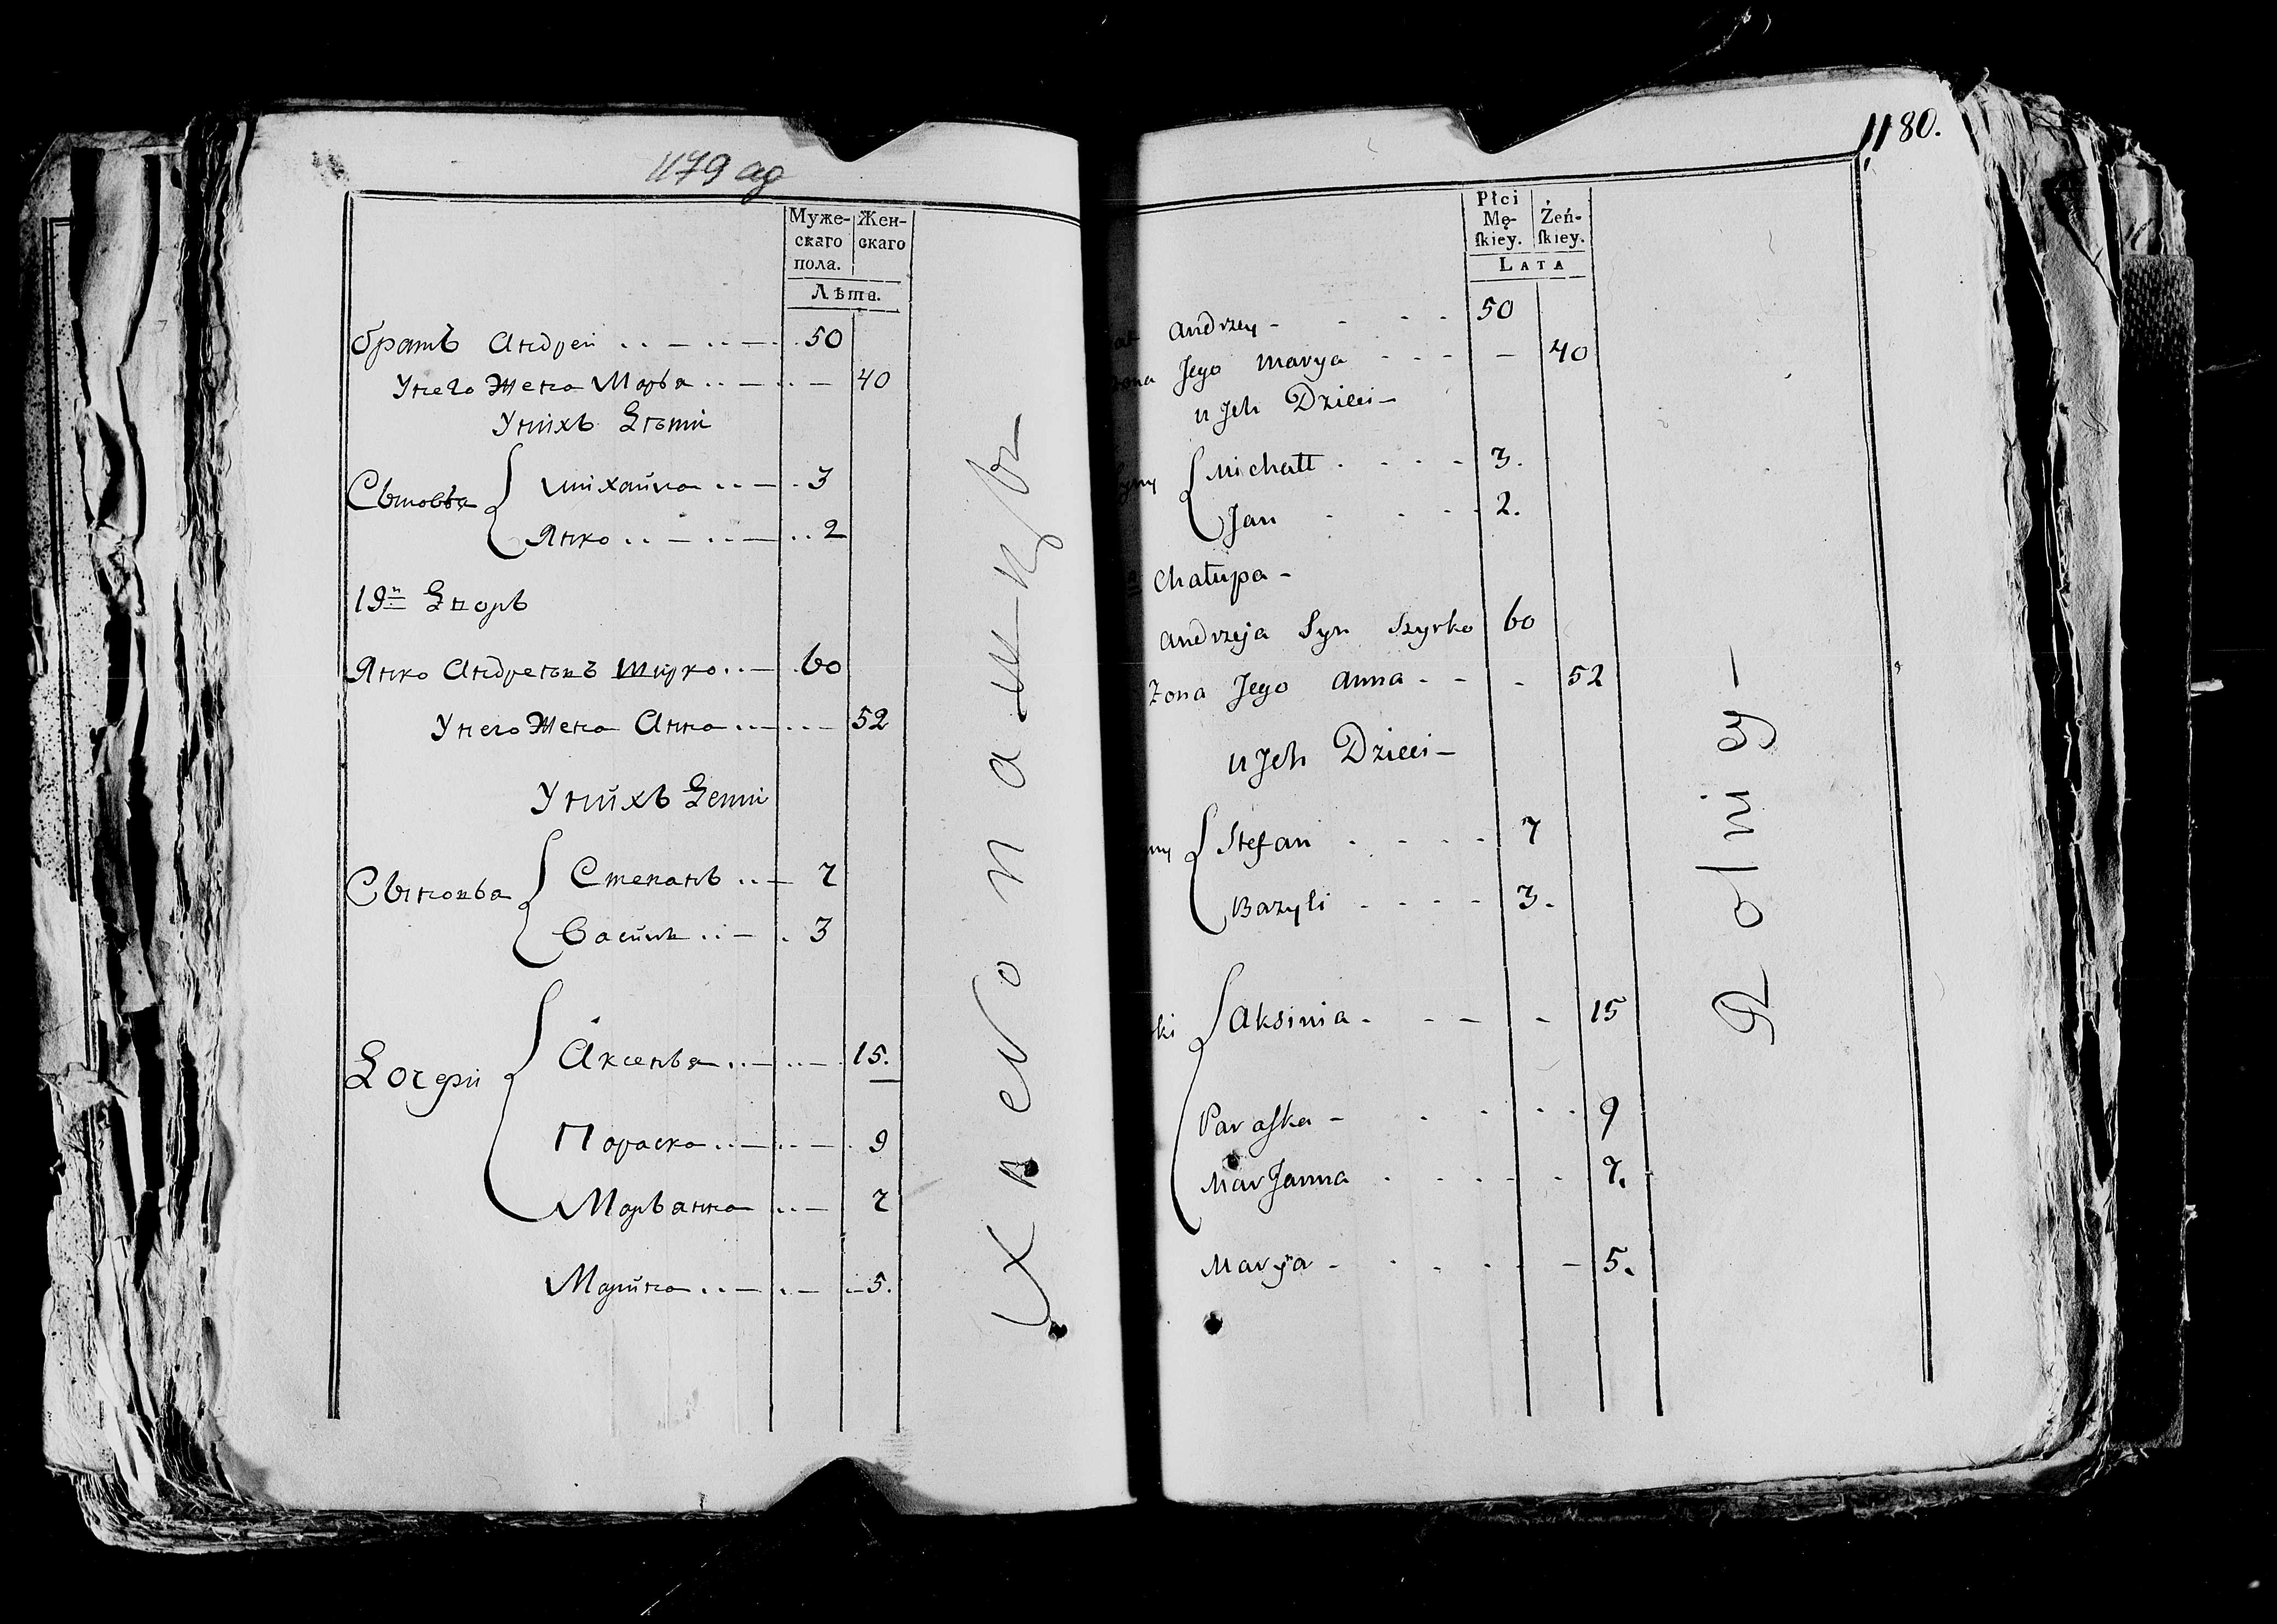 479 ад
Муже- Жен-
скаго скаго
пола.
Лѣта.
братъ Андреи 50
Унего Жена Марья 40
Унихъ Дѣти
Сыновья
Михайла 3
Янко 2
19й Дворъ
Янко Андреевъ Ширко 60
Унего Жена Анна 52
Унихъ Дети
Сыновья
Степанъ 7
Васили 3
Дочери
Аксенья 15.
Параска 9
Марьянна 7
Марина 5.
Хлевопашцы
1180.
Płci
Mę- Żeń-
ſkiey. ſkiey.
LATA
Andrzey 50
Jego Marya 40
u Jch Dzieci
Michałł 3.
Jan 2.
Chałupa
Andrzeja Syn Szyrko 60
Zona Jego Anna 52
u Jch Dzieci
Stefan 7
Bazyli 3.
Aksinia 15
Paraſka 9
MarJanna 7.
Maryja 5.
Rolnicy